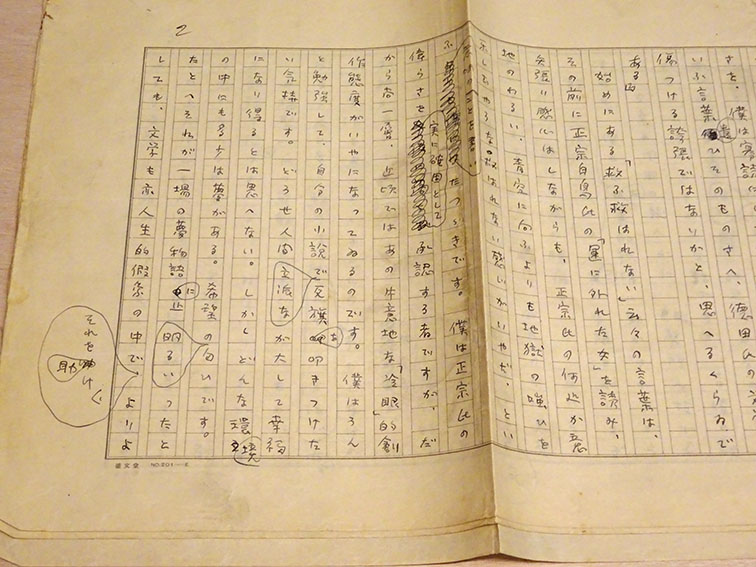 2
さを、僕は
いふ言葉 ひたのものさへ、徳田氏
傷つける誇張ではないかと、思へるくらゐで
ある。
始めにある「救ふ救はれない」云々の言葉は、
その前に正宗白鳥氏の「星に外れた女」を読み、
矢張り感心はしながらも、正宗氏の何処か意
地のわるい、青空に向ふよりも地獄の嗤ひを
してやるな救はれない感じがいやだ、とい
ふ たつきです。僕は正宗氏の
偉らさを実に確固として承認する者ですが、だ
から尚一層、近頃ではあの生意地な「冷眼」的創
作態度がいやになつてゐるのです。僕はうん
と勉強して、自分の小説で反旗を叩きつけた
い気持です。どうせ人間立派ながたして幸福
になり得るとは思へない。しかしどんな環境
の中にも多少は夢がある。希望の匂ひです。
たとへそれが一場の夢物語に近明るいつたと
しても、文学も亦人生的假象の中でよりよ
それを助け
助
NO.201